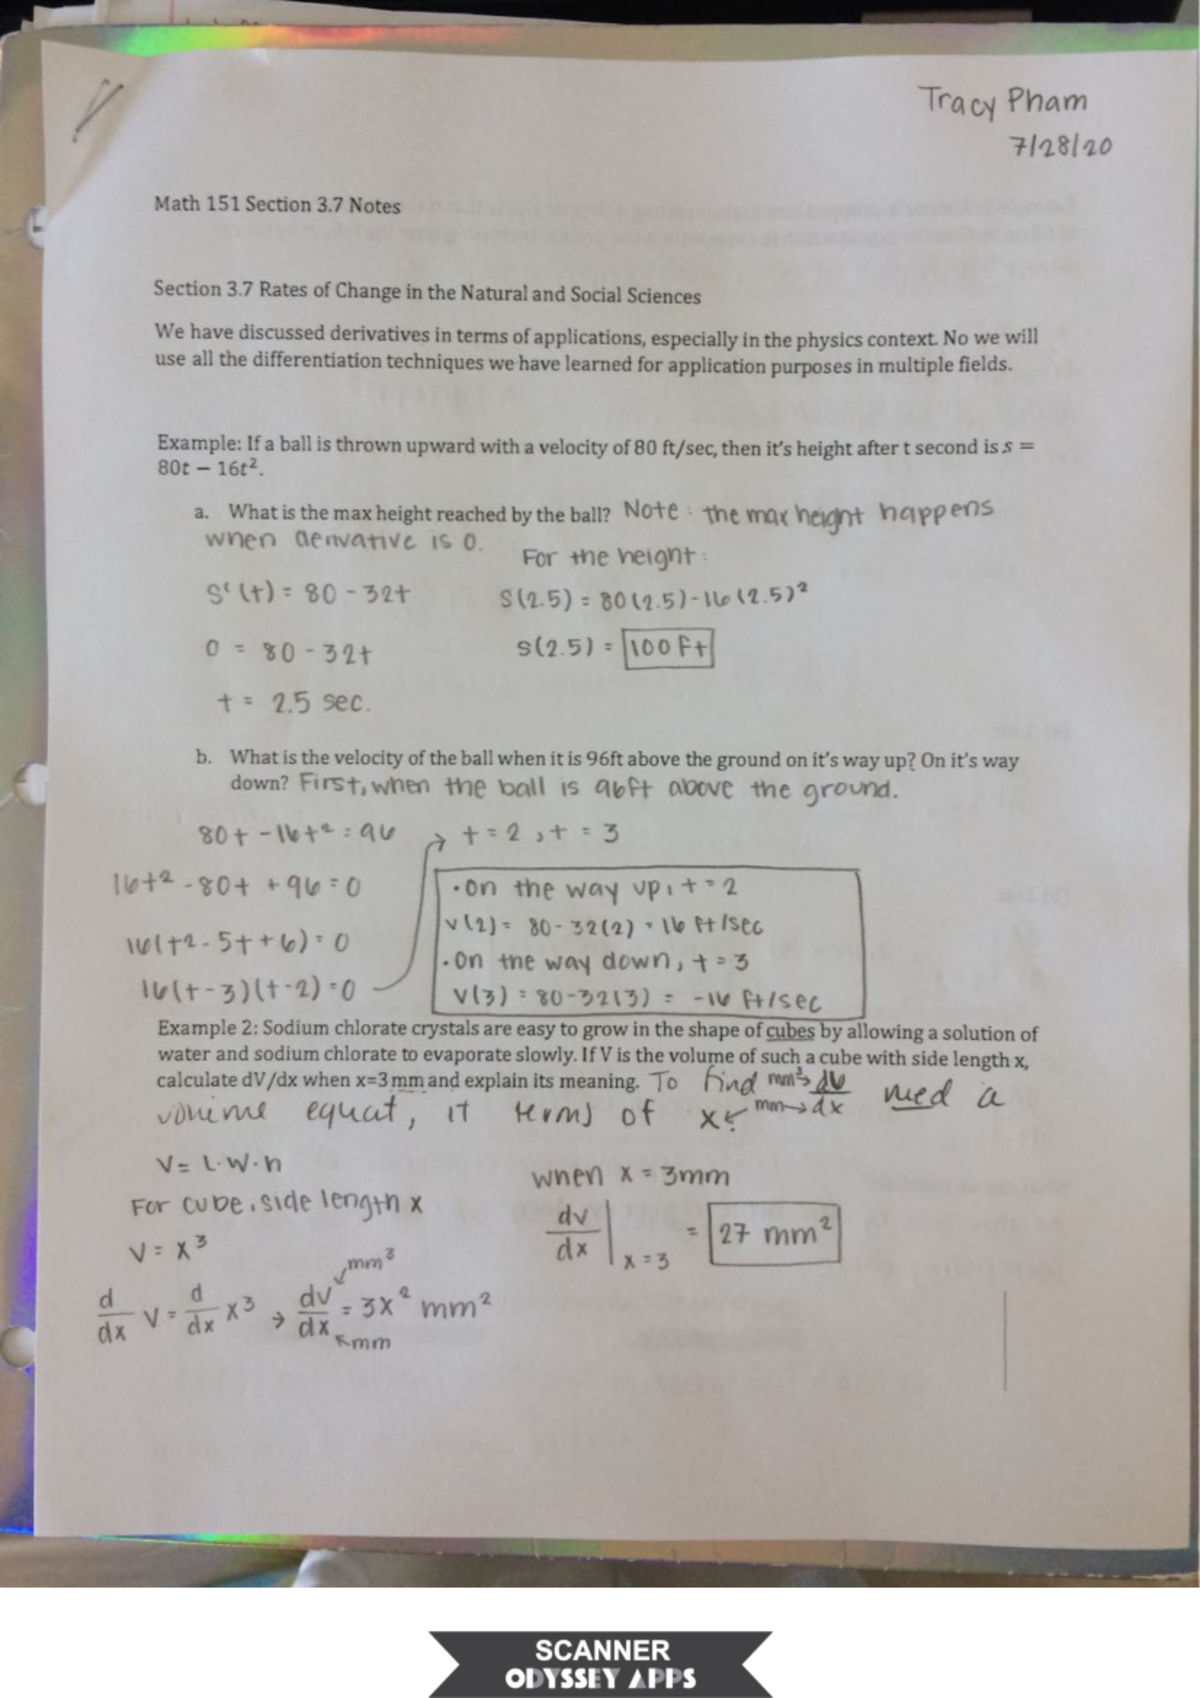 Tracy Pham
7/28/20
Math 151 Section 3.7 Notes
Section 3.7 Rates of Change in the Natural and Social Sciences
We have discussed derivatives in terms of applications, especially in the physics context. No we will
use all the differentiation techniques we have learned for application purposes in multiple fields.
Example: If a ball is thrown upward with a velocity of 80 ft/sec, then it's height after t second is s =
80t − 16t².
a. What is the max height reached by the ball? Note: the max height happens
when derivative is 0.
For the height:
s'(t) = 80 - 32t
s(2.5) = 80(2.5) - 16(2.5)²
0 = 80 - 32t
s(2.5) = 100 ft
t = 2.5 sec.
b. What is the velocity of the ball when it is 96ft above the ground on it's way up? On it's way
down? First, when the ball is 96ft above the ground.
80t - 16t² = 96
→ t = 2, t = 3
16t² - 80t + 96 = 0
• On the way up, t = 2
v(2) = 80 - 32(2) = 16 ft/sec
16(t² - 5t + 6) = 0
• On the way down, t = 3
16(t-3)(t-2) = 0
v(3) = 80 - 32(3) = -16 ft/sec
Example 2: Sodium chlorate crystals are easy to grow in the shape of cubes by allowing a solution of
water and sodium chlorate to evaporate slowly. If V is the volume of such a cube with side length x,
calculate dV/dx when x=3 mm and explain its meaning. To find mm³→ dV need a
mm→ dx
volume equat, it terms of x
V = l·w·h
when x = 3mm
For cube, side length x
dv/dx | x=3 = 27 mm²
V = x³
mm³
d/dx V = d/dx x³ → dv/dx = 3x² mm²
mm
SCANNER
ODYSSEY APPS